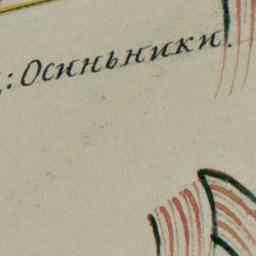 :Осинники.